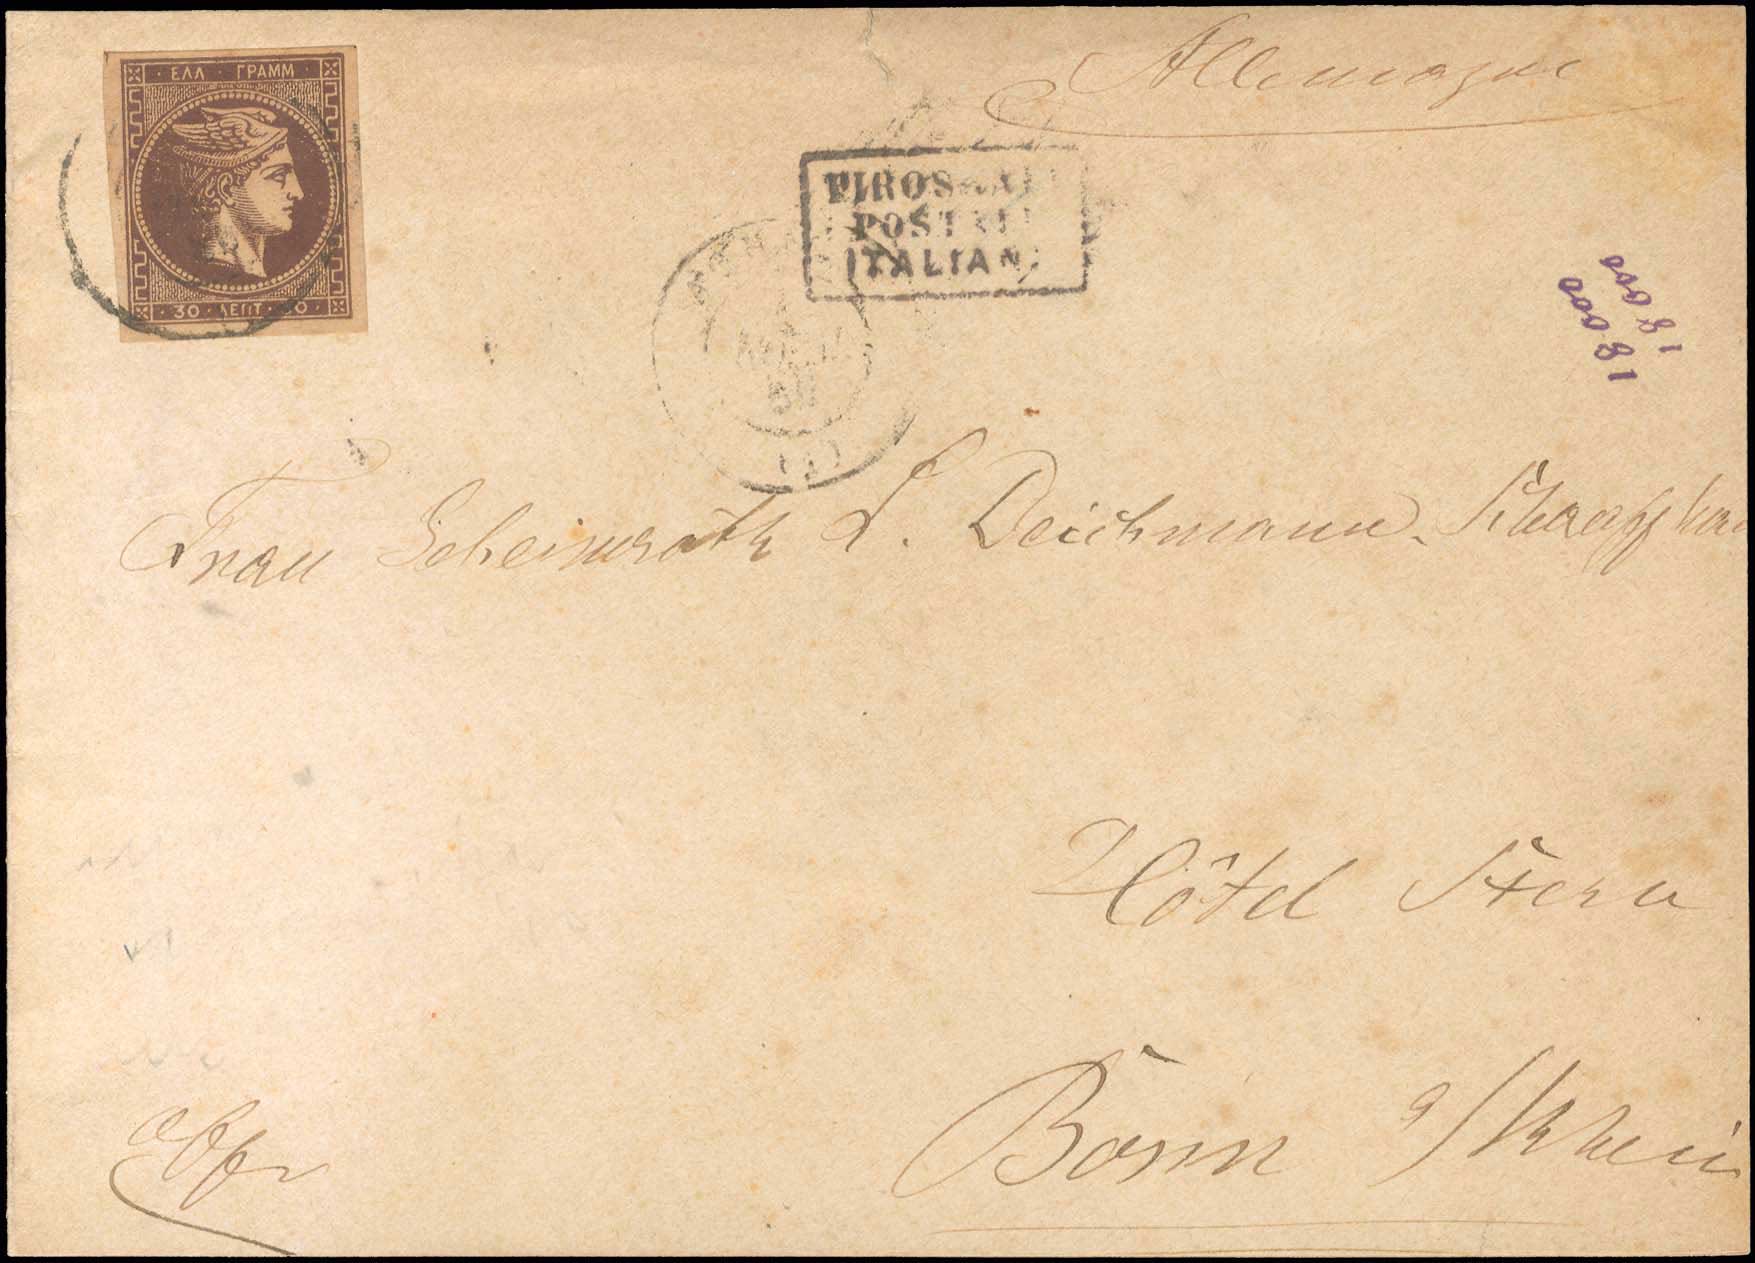 ΕΛΛ · ΓΡΑΜΜ
30 · ΛΕΠΤ · 30
Allemagne
PIROS
POST
ITALIAN
(1)
18000
18000
Frau Geheimrath L. Deichmann.
Hôtel Stern
Bonn a/Rhein